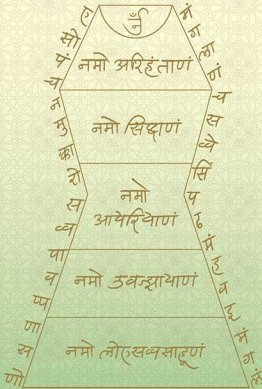 ॐ
नमो अरिहंताणं
नमो सिद्धाणं
नमो
आयेरियाणं
नमो उवज्झायाणं
नमो लोएसव्वसाहूणं
ए सो पं च न मु क्का रो स व्व पा व प्प णा स णो
मं ग ला णं च स व्वे सिं प ढ मं ह व इ मं ग लं